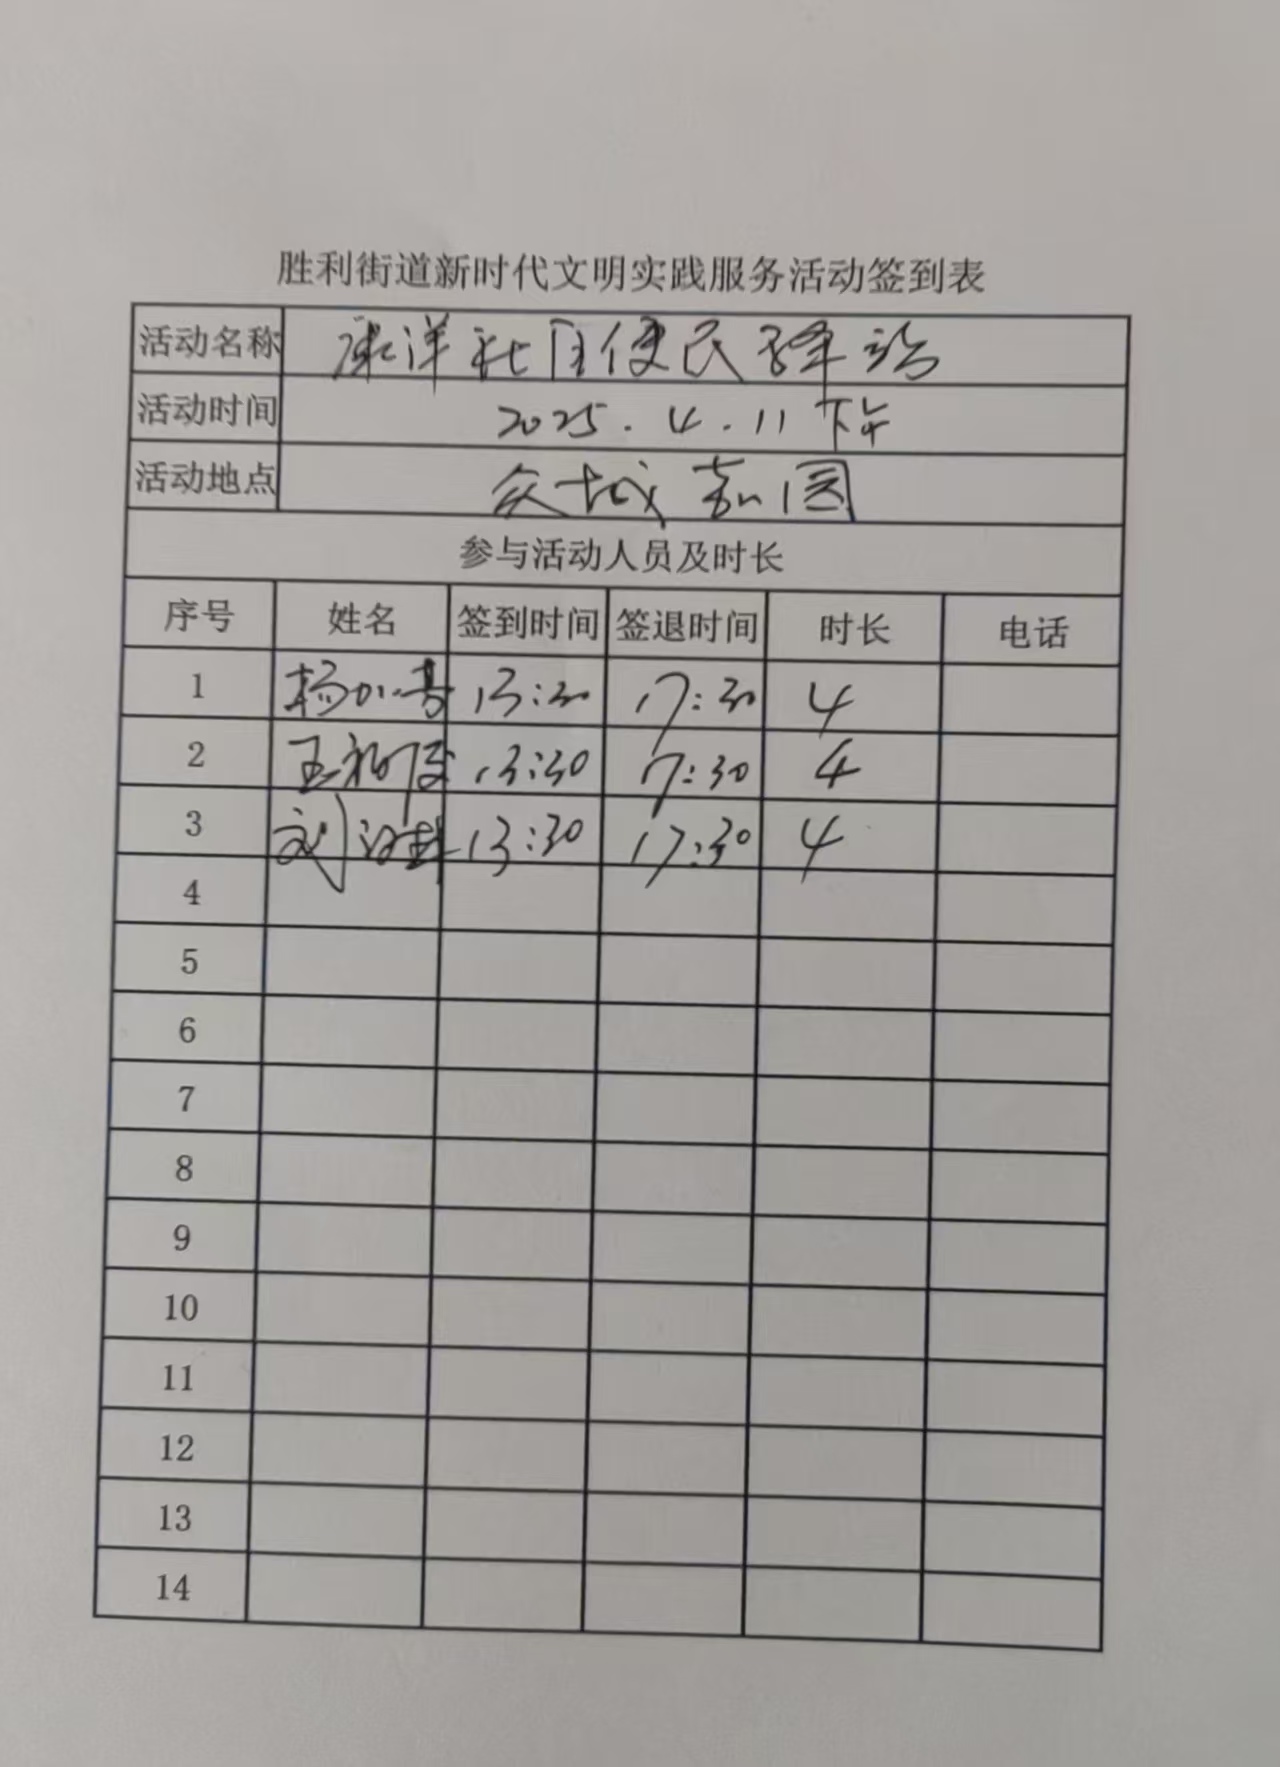 胜利街道新时代文明实践服务活动签到表
活动名称 康洋社区便民驿站
活动时间 2025.4.11 下午
活动地点 众城嘉园
参与活动人员及时长
序号 姓名 签到时间 签退时间 时长 电话
1 杨 13:30 17:30 4
2 王 13:30 17:30 4
3 刘 13:30 17:30 4
4
5
6
7
8
9
10
11
12
13
14